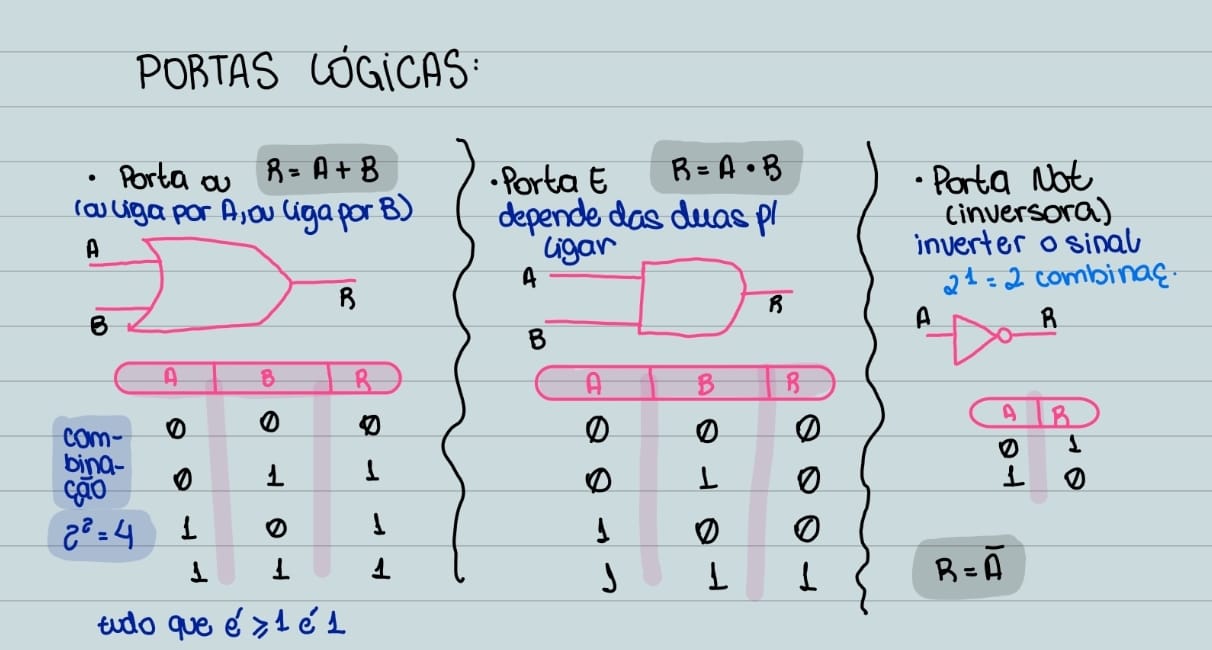 PORTAS LÓGICAS:
• Porta ou R = A + B
(ou liga por A, ou liga por B)
A
B
R
A B R
0 0 0
0 1 1
1 0 1
1 1 1
com-
bina-
ção
2² = 4
tudo que é ≥ 1 é 1
• Porta E R = A • B
depende das duas p/
ligar
A
B
R
A B R
0 0 0
0 1 0
1 0 0
1 1 1
• Porta Not
(inversora)
inverter o sinal
2¹ = 2 combinaç.
A R
A R
0 1
1 0
R = Ā